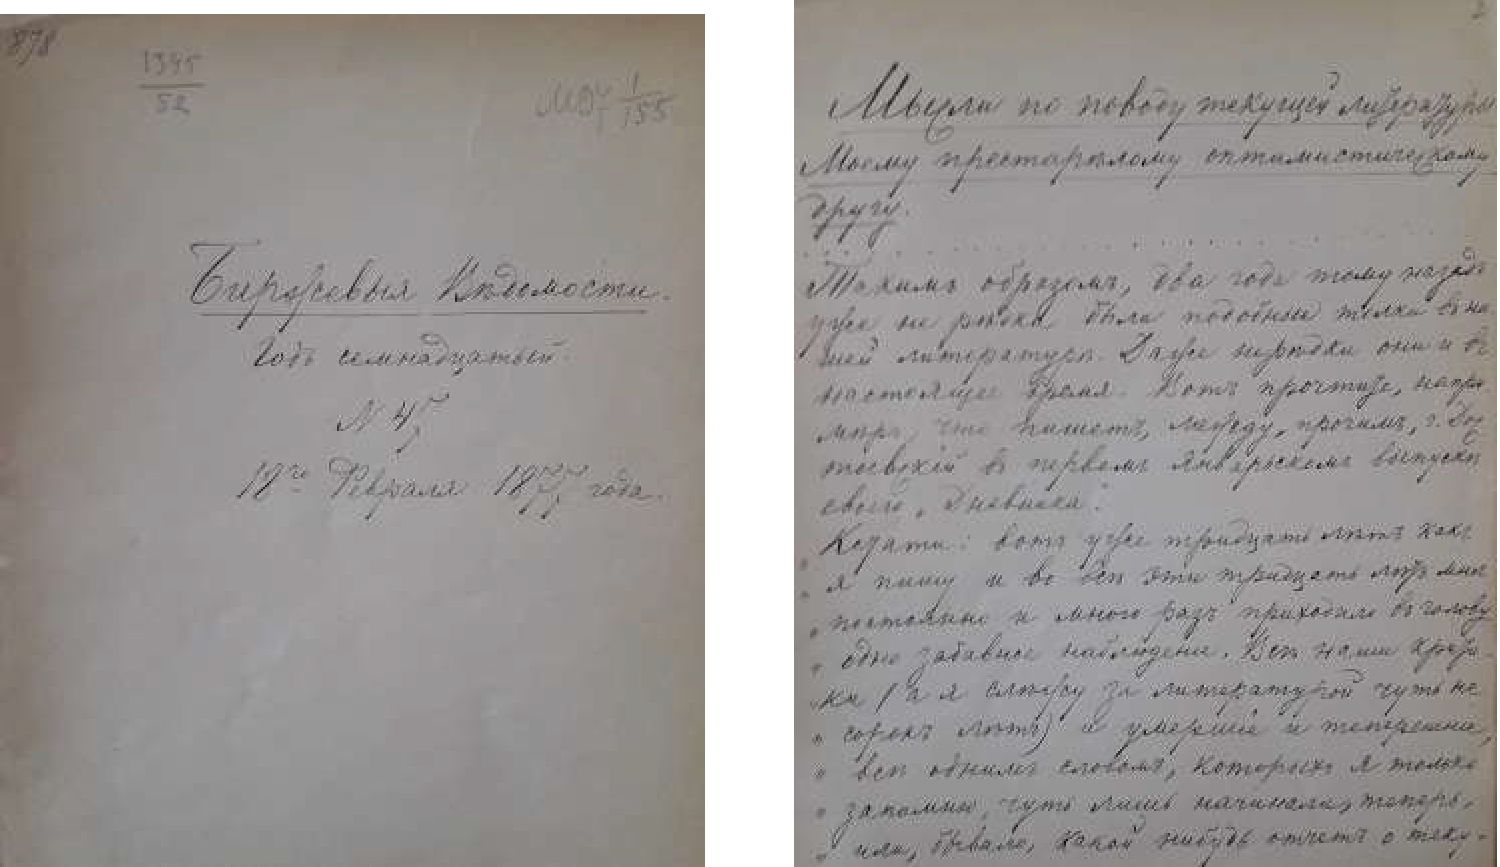 878
1345
52
1
155
Биржевыя Вѣдомости.
Годъ семнадцатый.
N 45
19го Февраля 1877 года.
2
Мысли по поводу текущей литературы
Моему престарѣлому оптимистическому
другу.
Такимъ образомъ, два года тому назадъ
уже не рѣдки были подобные толки въ на
шей литературѣ. Даже нерѣдки они и въ
настоящее время. Вотъ прочтите, напри
мѣръ, что пишетъ, между, прочимъ, г. Дос
тоевскій въ первомъ Январьскомъ выпускѣ
своего „Дневника".
Кстати: вотъ уже тридцать лѣтъ какъ
„ я пишу и во всѣ эти тридцать лѣтъ мнѣ
„ постоянно и много разъ приходило въ голову
„ одно забавное наблюдение. Всѣ наши крити-
„ ки (а я слѣжу за литературой чуть не
„ сорокъ лѣтъ) и умершие и теперешние,
„ всѣ однимъ словомъ, которыхъ я только
„ запомню, чуть лишь начинали, теперь,
„ или, бывало, какой нибудь отчетъ о теку-